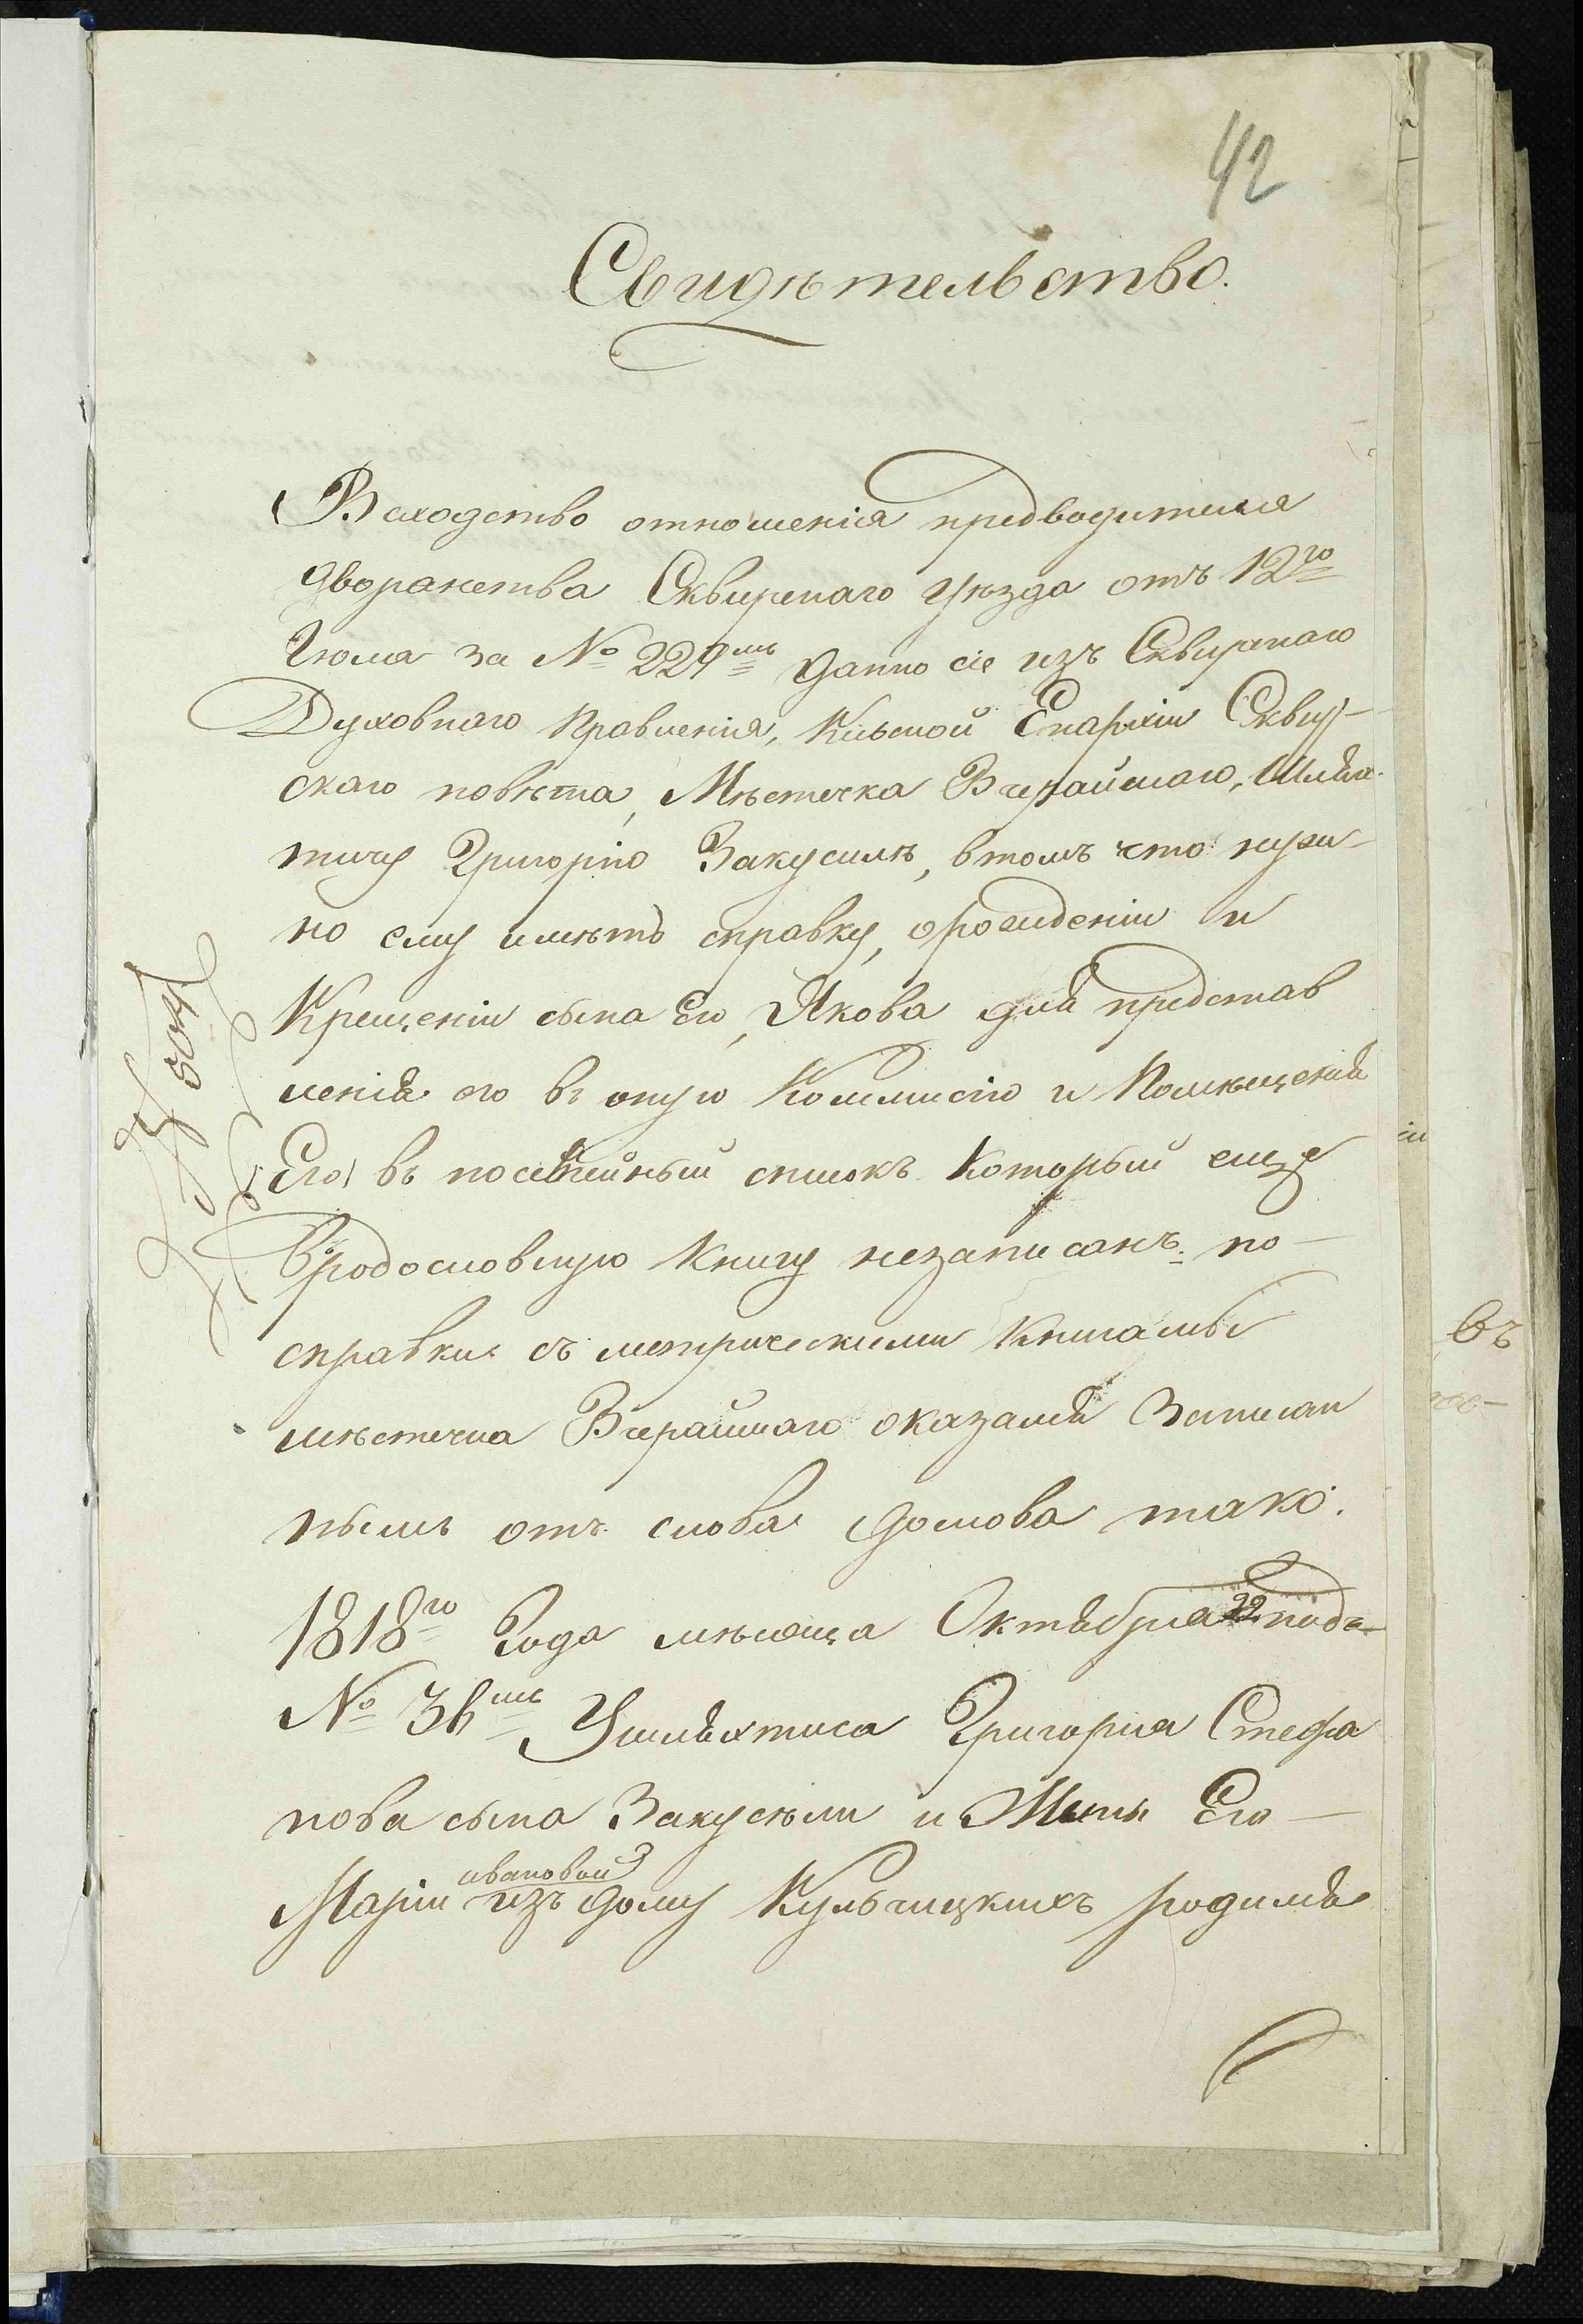 42
Свидѣтельство.
Всходство отношенія предводителя
дворянства Сквирскаго уѣзда отъ 12го
Іюля за № 229мъ данно сіе изъ Сквирскаго
Духовнаго Правленія, Кіевской Епархіи Сквир-
скаго повѣта, Мѣстечка Вчерайшаго, Шлях-
тичу Григорію Закусилѣ, втомъ что нуж-
но ему имѣть справку, орождении и
Крещеніи сына Его, Якова для представ
ленія его въ оную Коммисію и Помѣщенія
Его въ посемейный списокъ который еще
Вродословную Книгу незаписанъ. по-
справки съ метрическими Книгамы
мѣстечка Вчерайшаго оказался Записан
нымъ отъ слова дослова тако.
1818го Года мѣсяца Октября 22 подъ
№ 36мъ Ушляхтича Григорія Стефа
нова сына Закусѣлы и Жены Его —
ивановой
Маріи изъ дому Кульчицкихъ родился
№ 504